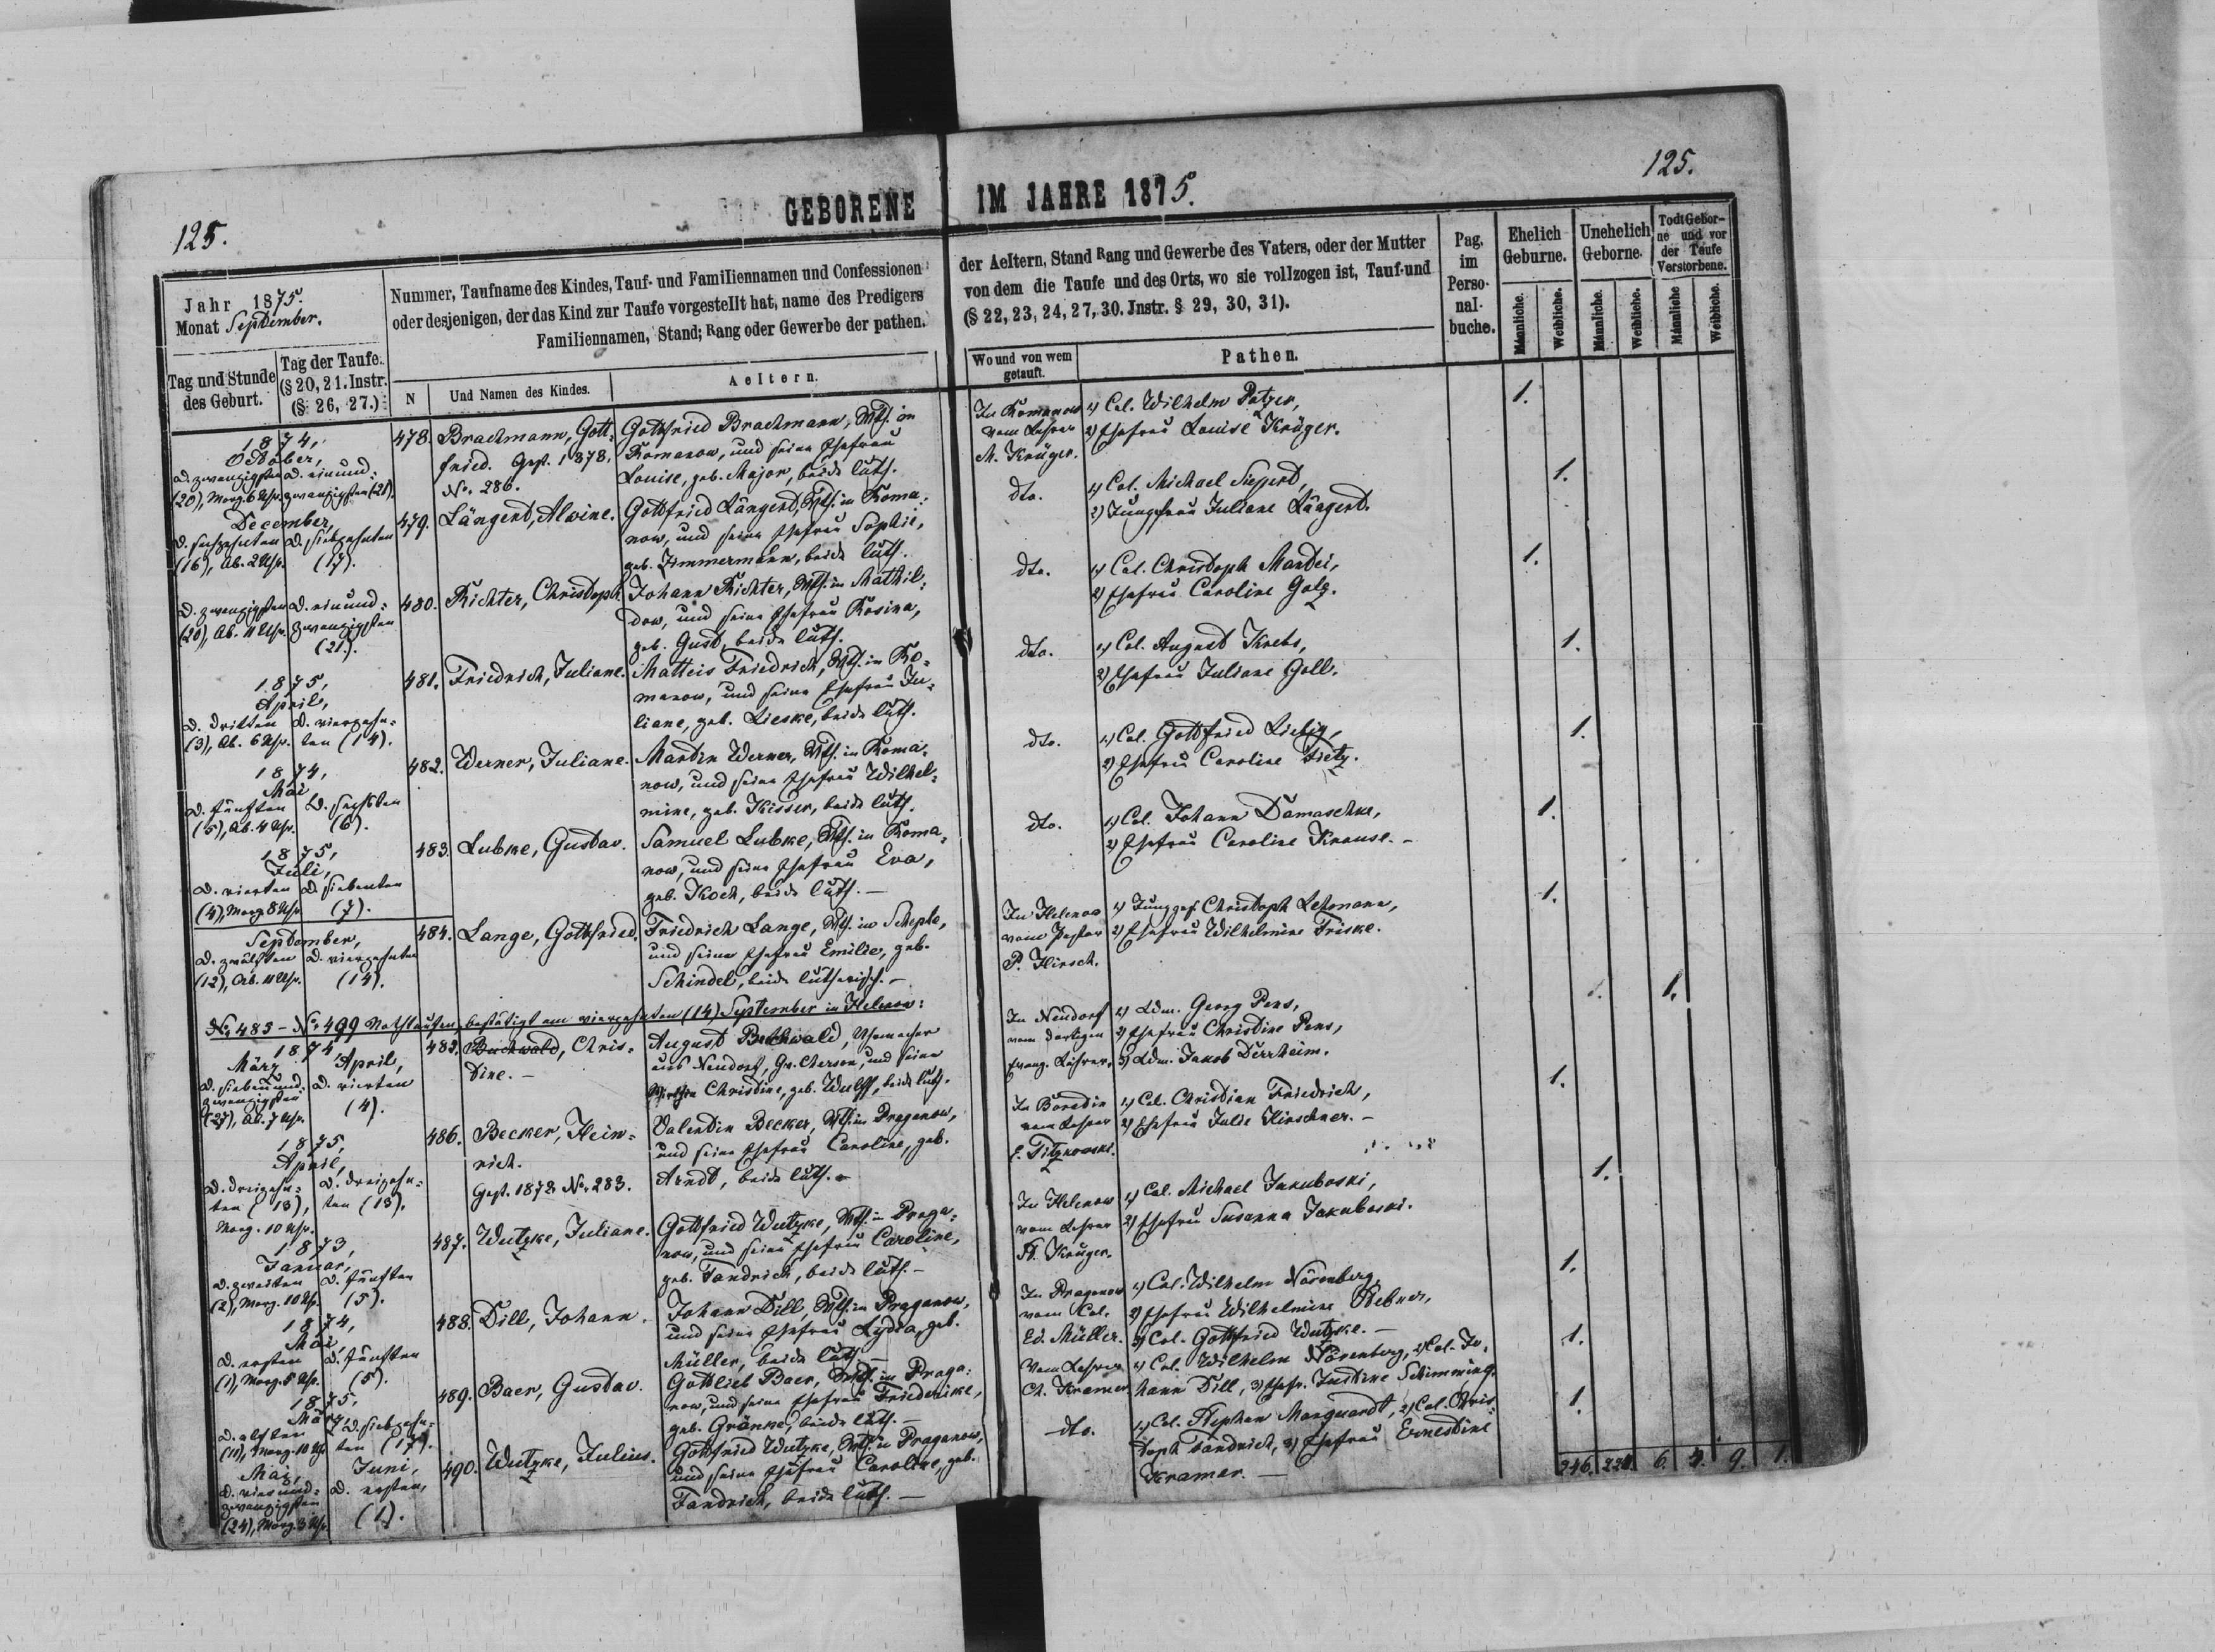 125.
GEBORENE
Jahr 1875.
Monat September.
Nummer, Taufname des Kindes, Tauf- und Familiennamen und Confessionen
oder desjenigen, der das Kind zur Taufe vorgestellt hat, name des Predigers
Familiennamen, Stand; Rang oder Gewerbe der pathen.
Tag und Stunde
des Geburt.
Tag der Taufe.
(§ 20, 21. Instr.
(§ 26, 27.)
N
Und Namen des Kindes.
Aeltern.
1874,
October,
d. zwanzigsten d. einund-
(20), Morg. 6 Uhr. zwanzigsten (21).
478. Brachmann, Gott-
fried. Gest. 1878.
No. 286.
Gottfried Brachmann, Wth. in
Romanow, und seine Ehefrau
Louise, geb. Major, beide luth.
December,
d. sechzehnten d. siebzehnten
(16), Ab. 2 Uhr. (17).
479. Längert, Alwine.
Gottfried Längert, Wth. in Roma-
now, und seine Ehefrau Sophie,
geb. Zimmermann, beide luth.
d. zwanzigsten d. einund-
(20), Ab. 11 Uhr. zwanzigsten
(21).
480. Richter, Christoph.
Johann Richter, Wth. in Mathil-
dow, und seine Ehefrau Rosina,
geb. Gust, beide luth.
1875,
April,
d. dritten d. vierzehn-
(3), Ab. 6 Uhr. ten (14).
481. Friedrich, Juliane.
Matteis Friedrich, Wth. in Ro-
manow, und seine Ehefrau Ju-
liane, geb. Lieske, beide luth.
1874,
Mai
d. fünften d. sechsten
(5), Ab. 4 Uhr. (6).
482. Werner, Juliane.
Martin Werner, Wth. in Roma-
now, und seine Ehefrau Wilhel-
mine, geb. Kisser, beide luth.
1875,
Juli,
d. vierten d. siebenten
(4), Morg. 8 Uhr. (7).
483. Lubke, Gustav.
Samuel Lubke, Wth. in Roma-
now, und seine Ehefrau Eva,
geb. Koch, beide luth. —
September,
d. zwölften d. vierzehnten
(12), Ab. 11 Uhr. (14).
484. Lange, Gottfried.
Friedrich Lange, Wth. in Scheple,
und seine Ehefrau Emilie, geb.
Schindel, beide lutherisch. —
No. 485 – No. 499 Nothtaufen, bestätigt am vierzehnten (14) September in Helenow:
1874,
März April,
d. siebenund- d. vierten
zwanzigsten (4).
(27), Ab. 7 Uhr.
485. Buchwald, Chris-
tine. —
August Buchwald,
aus Neudorf, Gv. Cherson, und seine
Christine, geb. Wulff, beide luth.
1875,
April,
d. dreizehn- d. dreizehn-
ten (13), ten (13).
Morg. 10 Uhr.
486. Becker, Hein-
rich.
Gest. 1878 No. 283.
Valentin Becker, Wth. in Praganow,
und seine Ehefrau Caroline, geb.
Arndt, beide luth. —
1873,
Januar,
d. zweiten d. fünften
(2), Morg. 10 Uhr. (5).
487. Wutzke, Juliane.
Gottfried Wutzke, Wth. in Praga-
now, und seine Ehefrau Caroline,
geb. Fandrich, beide luth. —
1874,
Mai,
d. ersten d. fünften
(1), Morg. 5 Uhr. (5).
488. Dill, Johann.
Johann Dill, Wth. in Praganow,
und seine Ehefrau Lydia, geb.
Müller, beide luth. —
1875,
März,
d. elften d. siebzehn-
(11), Morg. 10 Uhr. ten (17).
489. Baer, Gustav.
Gottlieb Baer, Wth. in Praga-
now, und seine Ehefrau Friederike,
geb. Gränke, beide luth. —
Mai, Juni,
d. vierund- d. ersten,
zwanzigsten (1).
(24), Morg. 3 Uhr.
490. Wutzke, Julius.
Gottfried Wutzke, Wth. in Praganow,
und seine Ehefrau Caroline, geb.
Fandrich, beide luth. —
125.
IM JAHRE 1875.
der Aeltern, Stand Rang und Gewerbe des Vaters, oder der Mutter
von dem die Taufe und des Orts, wo sie vollzogen ist, Tauf-und
(§ 22, 23, 24, 27, 30. Jnstr. § 29, 30, 31).
Wo und von wem
getauft.
Pathen.
Pag.
im
Perso-
nal-
buche.
Ehelich
Geburne.
Unehelich
Geborne.
Todt Gebor-
ne und vor
der Taufe
Verstorbene.
Männliche.
Weibliche.
Männliche.
Weibliche.
Männliche
Weibliche.
In Romanow
vom Lehrer
M. Krüger.
1) Col. Wilhelm Patzer,
2) Ehefrau Louise Krüger.
1.
dto.
1) Col. Michael Siepert,
2) Jungfrau Juliane Längert.
1.
dto.
1) Col. Christoph Mantei,
2) Ehefrau Caroline Golz.
1.
dto.
1) Col. August Krebs,
2) Ehefrau Juliane Goll.
1.
dto.
1) Col. Gottfried Liebig,
2) Ehefrau Caroline Tietz.
1.
dto.
1) Col. Johann Damaschke,
2) Ehefrau Caroline Krause. —
1.
In Helenow
vom Pastor
P. Hirsch.
1) Junggs. Christoph Lehmann,
2) Ehefrau Wilhelmine Friske.
1.
In Neudorf
vom dortigen
evang. Lehrer.
1) Ldm. Georg Pens,
2) Ehefrau Christine Pens,
3) Ldm. Jakob Derrheim.
1. 1.
In Boratin
vom Lehrer
E. Titzkowski.
1) Col. Christian Friedrich,
2) Ehefrau Julie Hirschner. —
1.
In Helenow
vom Lehrer
M. Krüger.
1) Col. Michael Jakuboski,
2) Ehefrau Susanna Jakuboski.
1.
In Praganow
vom Col.
Ed. Müller.
1) Col. Wilhelm Nörenberg,
2) Ehefrau Wilhelmine
3) Col. Gottfried Wutzke. —
1.
Vom Lehrer
Ch. Kramer
1) Col. Wilhelm Nörenberg, 2) Col. Jo-
hann Dill, 3) Ehefr. Justine Schimming.
1.
dto.
1) Col. Stephan Marquardt, 2) Col. Chris-
toph Fandrich, 3) Ehefrau Ernestine
Kramer. —
1.
246. 228. 6. 4. 9. 1.